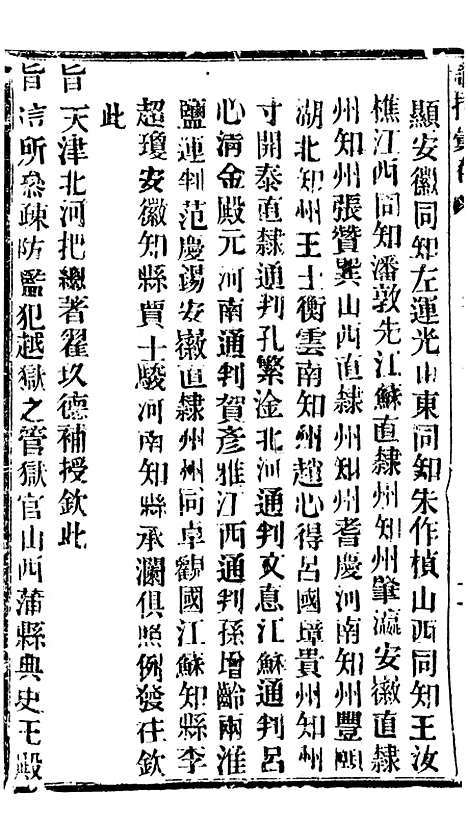 諭摺彙存
顯安徽同知左運光山東同知朱作楨山西同知王汝
樵江西同知潘敦先江蘇直隸州知州肇瀛安徽直隸
州知州張贊巽山西直隸州知州耆慶河南知州豐顧
湖北知州王士衡雲南知州趙心得呂國璋貴州知州
寸開泰直隸通判孔繁淦北河通判文惪江蘇通判呂
心清金殿元河南通判賀彥雅江西通判孫增齡兩淮
鹽運判范慶錫安徽直隸州州同卓觀國江蘇知縣李
超瓊安徽知縣賈士駿河南知縣承瀾俱照例發往欽
此
旨天津北河把總著翟玖德補授欽此
旨 所 疎防監犯越獄之管獄官山西蒲縣典史王殿